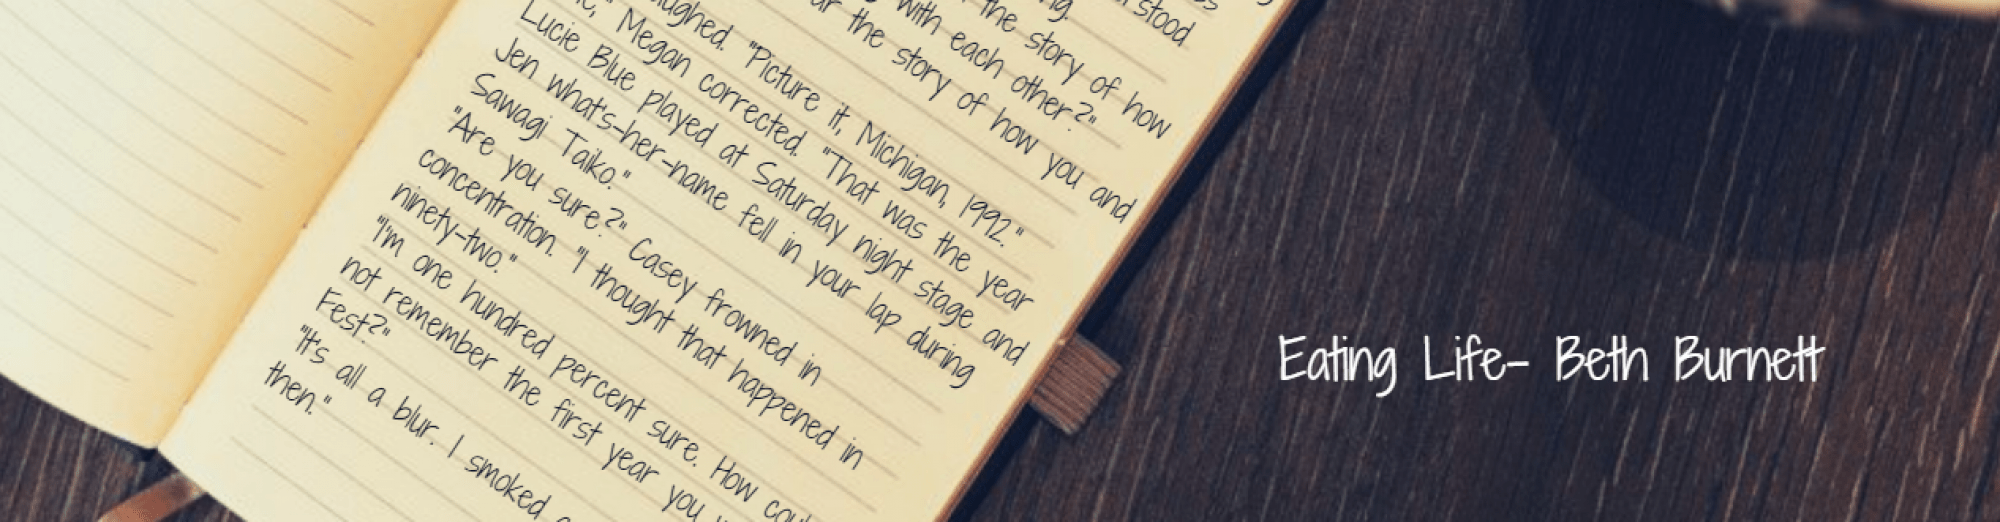 stood
the story of how
with each other?"
the story of how you and
"Picture it, Michigan, 1992."
Megan corrected. "That was the year
Lucie Blue played at Saturday night stage and
Jen what's-her-name fell in your lap during
Sawagi Taiko."
"Are you sure?" Casey frowned in
concentration. "I thought that happened in
ninety-two."
"I'm one hundred percent sure. How
not remember the first year you
Fest?"
"It's all a blur. I smoked
then."
Eating Life- Beth Burnett